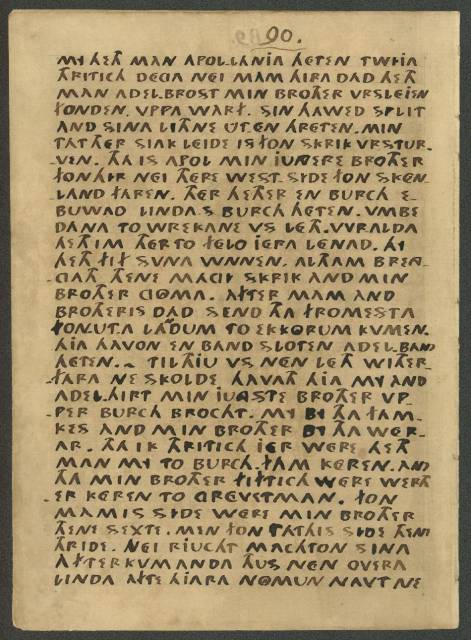 90.
MY HETH MAN APOL.LANJA HETEN TWIJA
THRITICH DEGA NEI MAM HJRA DAD HETH
MAN ADEL.BROST MIN BROTHER VRSLEJEN
FONDEN. VPPA WARF. SIN HAWED SPLIT
AND SINA LITHNE UT EN HRETEN. MIN
TAT THER SIAK LEIDE IS FON SKRIK VRSTUR-
VEN. THA IS APOL MIN JUNGERE BROTHER
FON HIR NEI THERE WEST.SIDE FON SKEN-
LAND FAREN. THER HETHER EN BURCH E-
BUWAD LINDA.S BURCH HETEN. VMBE
DANA TO WREKANE VS LETH. WRALDA
HETH IM THER TO FELO JERA LENAD. HI
HETH FIF SUNA WNNEN. ALTHAM BRENG-
GATH THENE MAGI SKRIK AND MIN
BROTHER GOMA. AFTER MAM AND
BROTHERIS DAD SEND THA FROMESTA
FON UTA LANDUM TO EKKORUM KVMEN.
HIA HAVON EN BAND SLOTEN ADEL.BAND
HETEN. TIL THIU VS NEN LETH WITHER-
FARA NE SKOLDE. HAVATH HIA MY AND
ADEL.HIRT MIN JUNGSTE BROTHER VP-
PER BURCH BROCHT. MY BY THA FAM-
KES AND MIN BROTHER BY THA WER-
AR. THA IK THRITICH JER WERE HETH
MAN MY TO BURCH.FAM KEREN. AND
THA MIN BROTHER FIFTICH WERE WERTH-
ER KEREN TO GREVETMAN. FON
MAMIS SIDE WERE MIN BROTHER
THENE SEXTE. MEN FON TATHIS SIDE THENE
THRIDE. NEI RIUCHT MACHTON SINA
AFTERKVMANDA THUS NEN OVERA
LINDA AFTE HIARA NOMUN NAVT NE